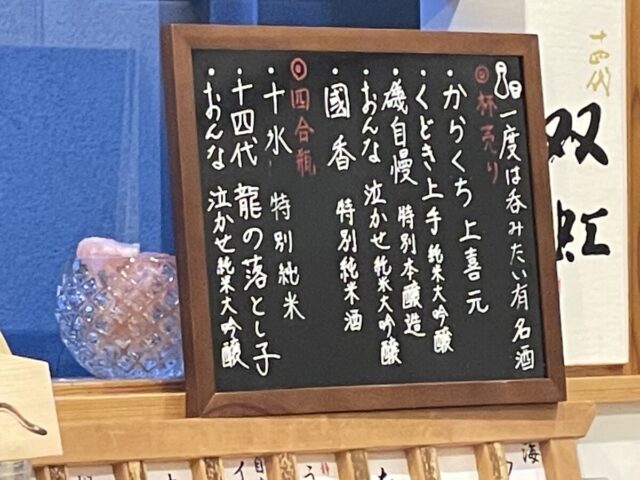 一度は呑みたい有名酒
◎杯売り
・からくち 上喜元
・くどき上手 純米大吟醸
・磯自慢 特別本醸造
・おんな泣かせ 純米大吟醸
・國香 特別純米酒
◎四合瓶
・十水 特別純米
・十四代 龍の落とし子
・おんな泣かせ 純米大吟醸
十四代
双虹
海